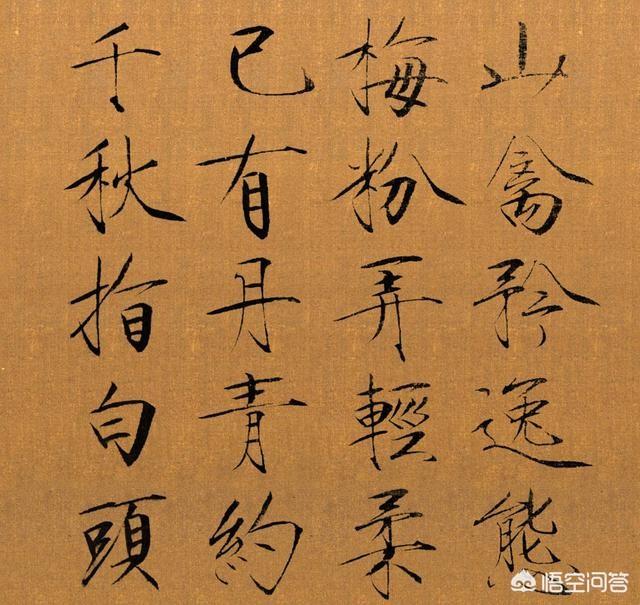 山禽矜逸態
梅粉弄輕柔
已有丹青約
千秋指白頭
悟空问答